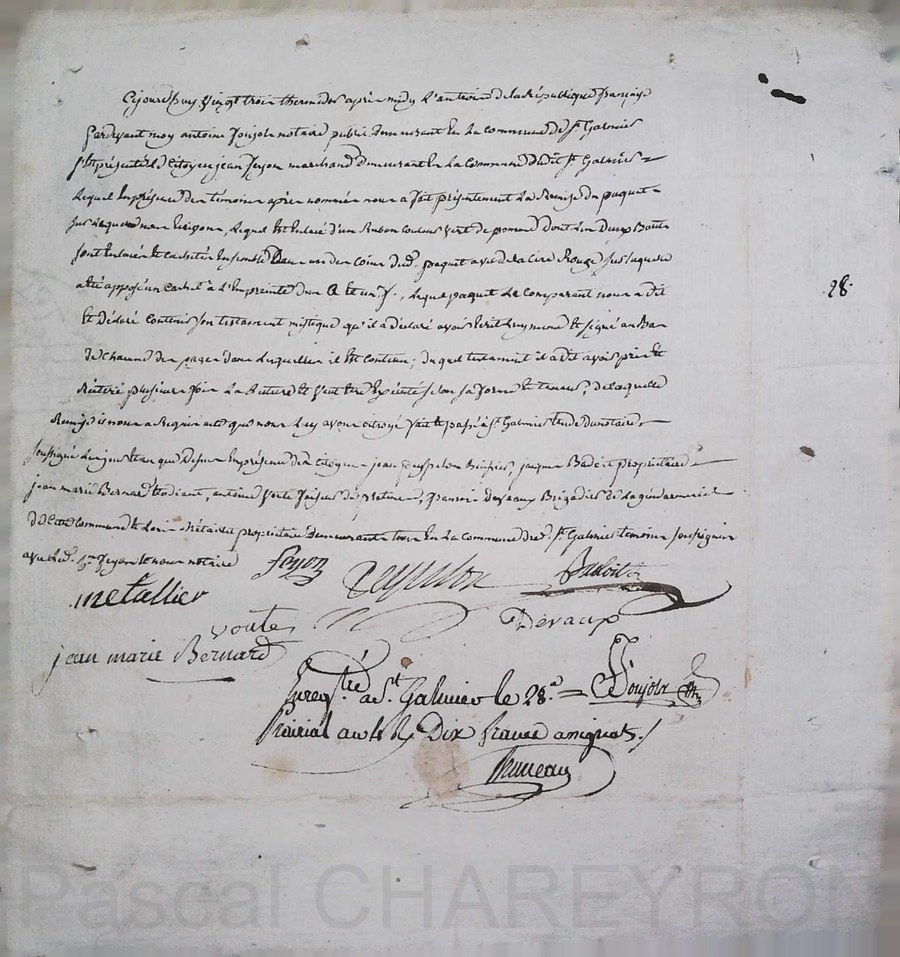 Cejourd'huy vingt trois thermidor après midy l'an troisie de la république française
Pardevant moy antoine Poujols notaire public demeurant En La commune de St Galmier
s'Est présenté Le Citoyen jean feyon marchand demeurant En La Commune dudit St Galmier
Lequel En présence des témoins après nommés nous a fait présentement La Remise du paquet
sur lequel nous Ecrivons, Lequel Est Enlacé d'un Ruban couleur vert de pomme dont Les Deux Bouts
sont Enlacés Et cachetés Ensemble Dans un des Coins dud. paquet avec de la cire Rouge sur laquelle
a été apposé un cachet à L'Empreinte d'un Et un f., Lequel paquet Le comparant nous a Dit
Et Déclaré Contenir son testament mistique qu'il a Déclaré avoir Ecrit Luy meme Et signé au Bas
de chacune des pages dans Lesquelles il Est contenu; duquel testament il a dit avoir pris Et
Réitéré plusieurs fois La Lecture Et veut Etre Exécuté selon sa forme Et teneur, de laquelle
Remise il nous a Requis acte que nous Luy avons octroyé fait Et passé à St Galmier Etude du notaire
soussigné Les jour Et an que Dessus En présence des citoyens jean, jacques Badoit propriétaire
jean marie Bernard Etudiant, antoine Voute, Devaux Brigadier de La gendarmerie
de Cette Commune Et Métallier propriétaire Demeurants tous En La Commune dud. St Galmier témoins soussignés
avec Led. Cn feyon Et nous notaire feyon
metallier Badoit
voute Devaux
jean marie Bernard
Enregtré a St Galmier le 28.e Poujols
Prairial an Dix francs assignats./.
Bruneau
28.
Pascal CHAREYRON